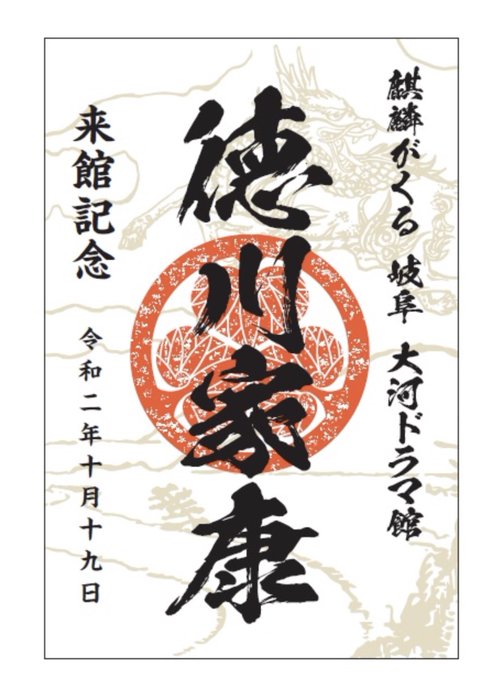 麒麟がくる 岐阜 大河ドラマ館
徳川家康
来館記念
令和二年十月十九日